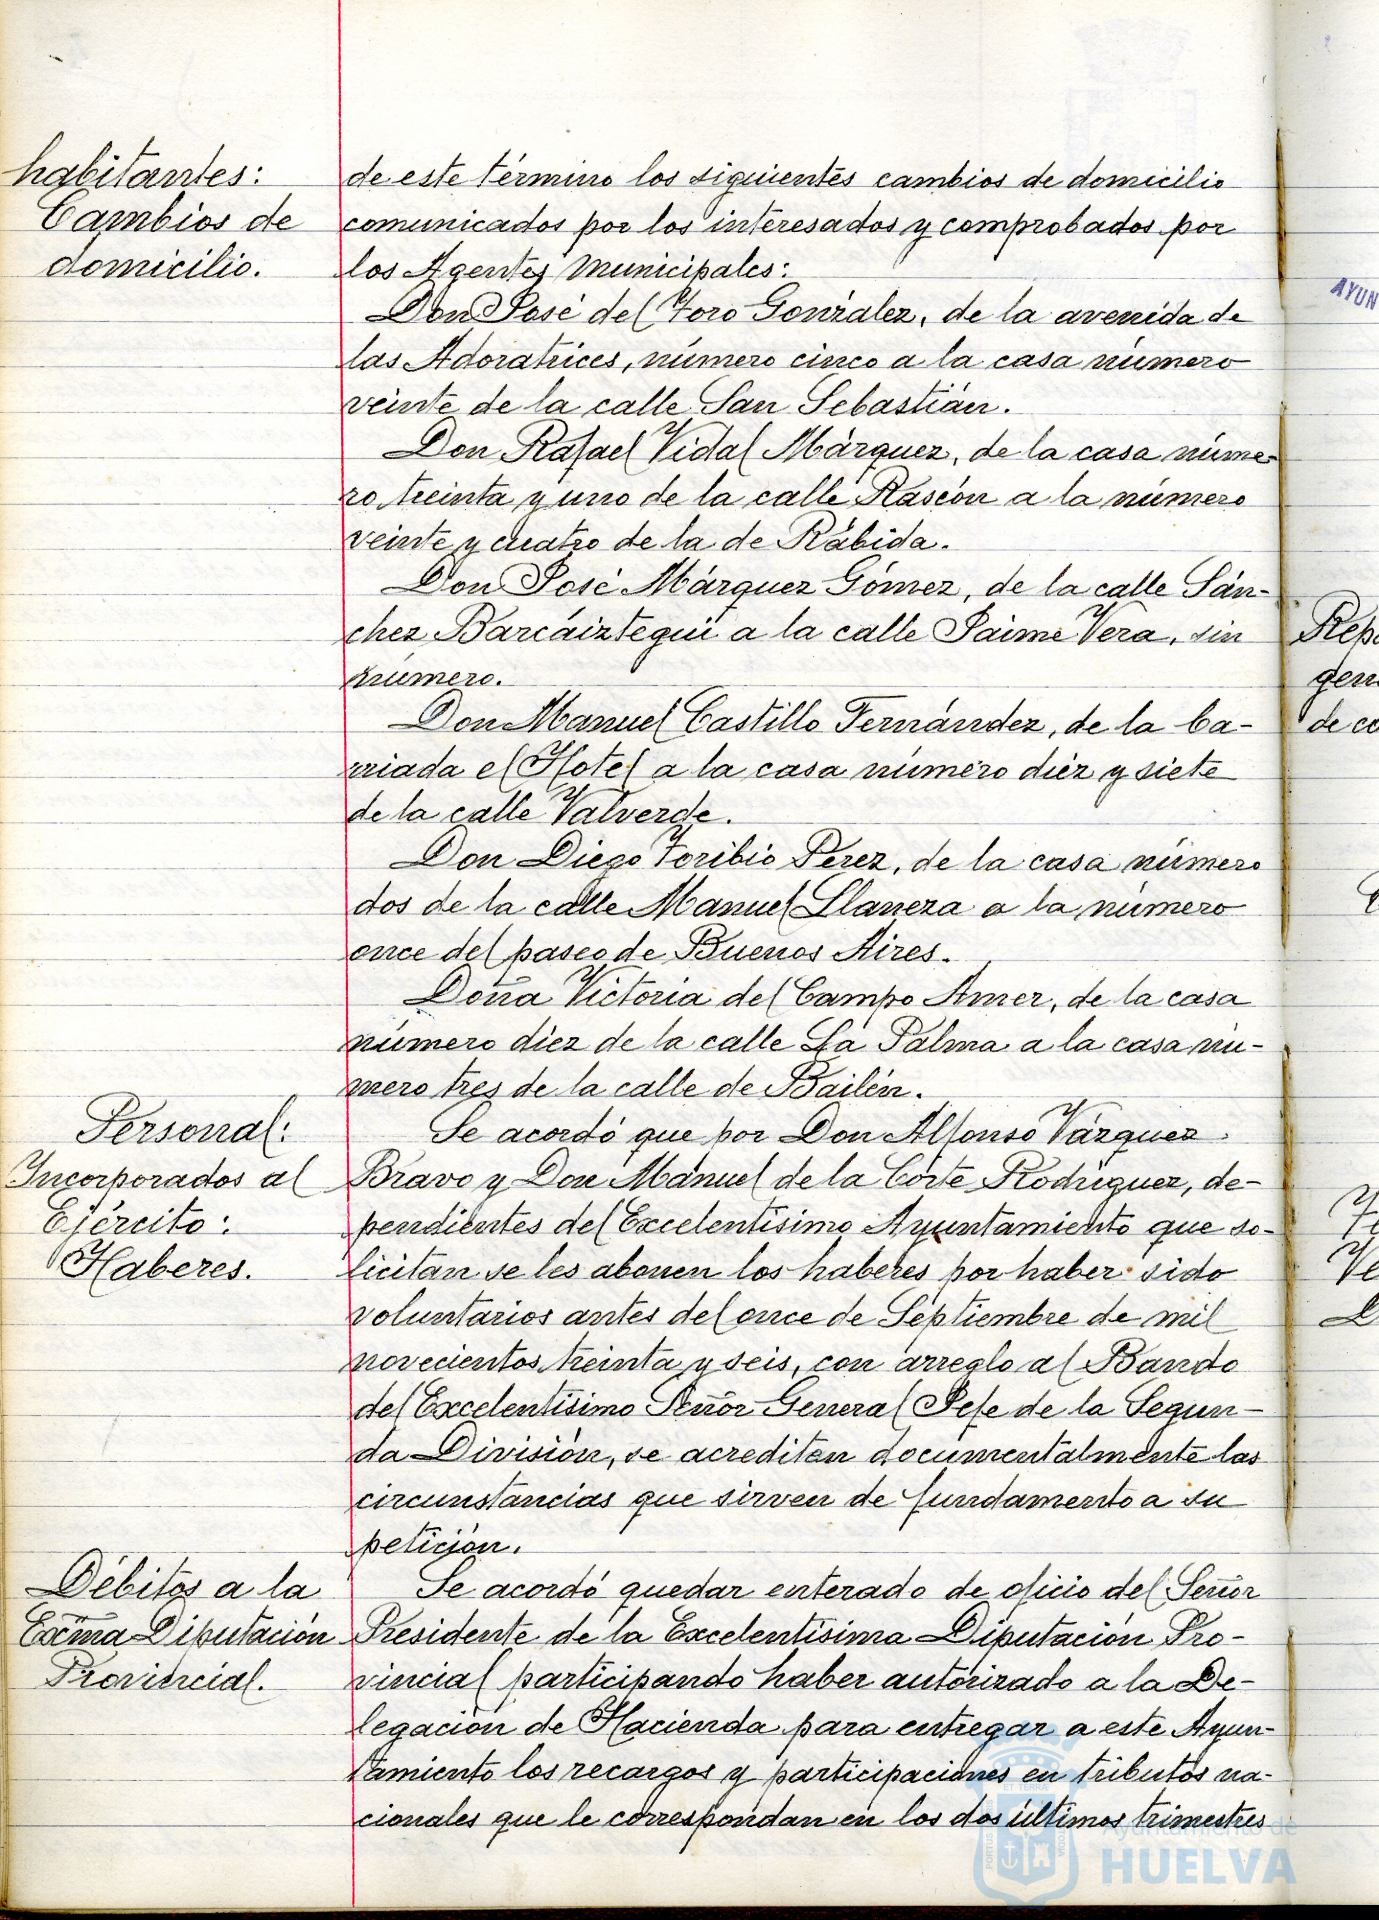 habitantes:
Cambios de
domicilio.
de este término los siguientes cambios de domicilio
comunicados por los interesados y comprobados por
los Agentes Municipales:
Don José del Toro González, de la avenida de
las Adoratrices, número cinco a la casa número
veinte de la calle San Sebastián.
Don Rafael Vidal Márquez, de la casa núme-
ro treinta y uno de la calle Rascón a la número
veinte y cuatro de la de Rábida.
Don José Márquez Gómez, de la calle Sán-
chez Barcáiztegui a la calle Jaime Vera, sin
número.
Don Manuel Castillo Fernández, de la ba-
rriada el Hotel a la casa número diez y siete
de la calle Valverde.
Don Diego Toribio Pérez, de la casa número
dos de la calle Manuel Llaneza a la número
once del paseo de Buenos Aires.
Doña Victoria del Campo Amer, de la casa
número diez de la calle La Palma a la casa nú-
mero tres de la calle de Bailén.
Personal:
Incorporados al
Ejército:
Haberes.
Se acordó que por Don Alfonso Vázquez
Bravo y Don Manuel de la Corte Rodríguez, de-
pendientes del Excelentísimo Ayuntamiento que so-
licitan se les abonen los haberes por haber sido
voluntarios antes del once de Septiembre de mil
novecientos treinta y seis, con arreglo al Bando
del Excelentísimo Señor General Jefe de la Segun-
da División, se acrediten documentalmente las
circunstancias que sirven de fundamento a su
petición.
Débitos a la
Excma Diputación
Provincial.
Se acordó quedar enterado de oficio del Señor
Presidente de la Excelentísima Diputación Pro-
vincial participando haber autorizado a la De-
legación de Hacienda para entregar a este Ayun-
tamiento los recargos y participaciones en tributos na-
cionales que le correspondan en los dos últimos trimestres
Ayuntamiento de
HUELVA
AYUN
Rep
gen
de co